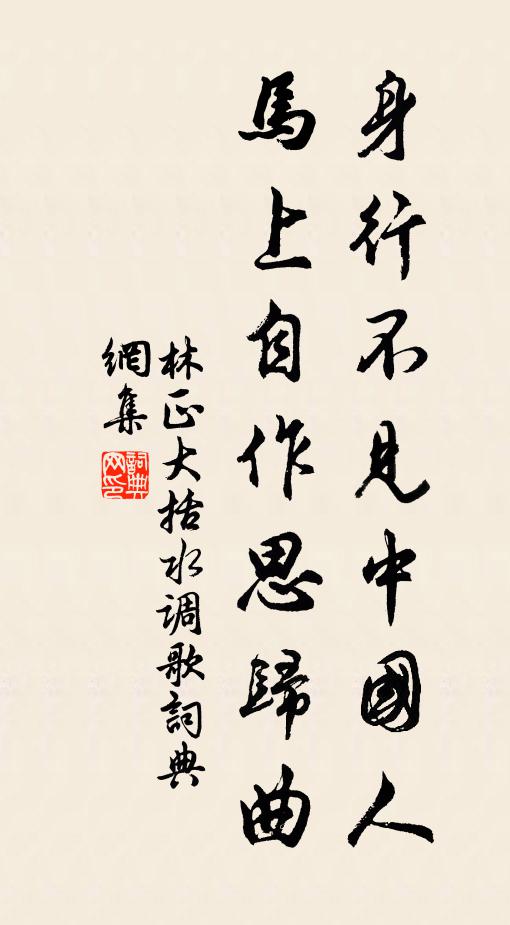 身行不見中國人
馬上自作思歸曲
林正大括水调歌詞典
網集
詞典网印